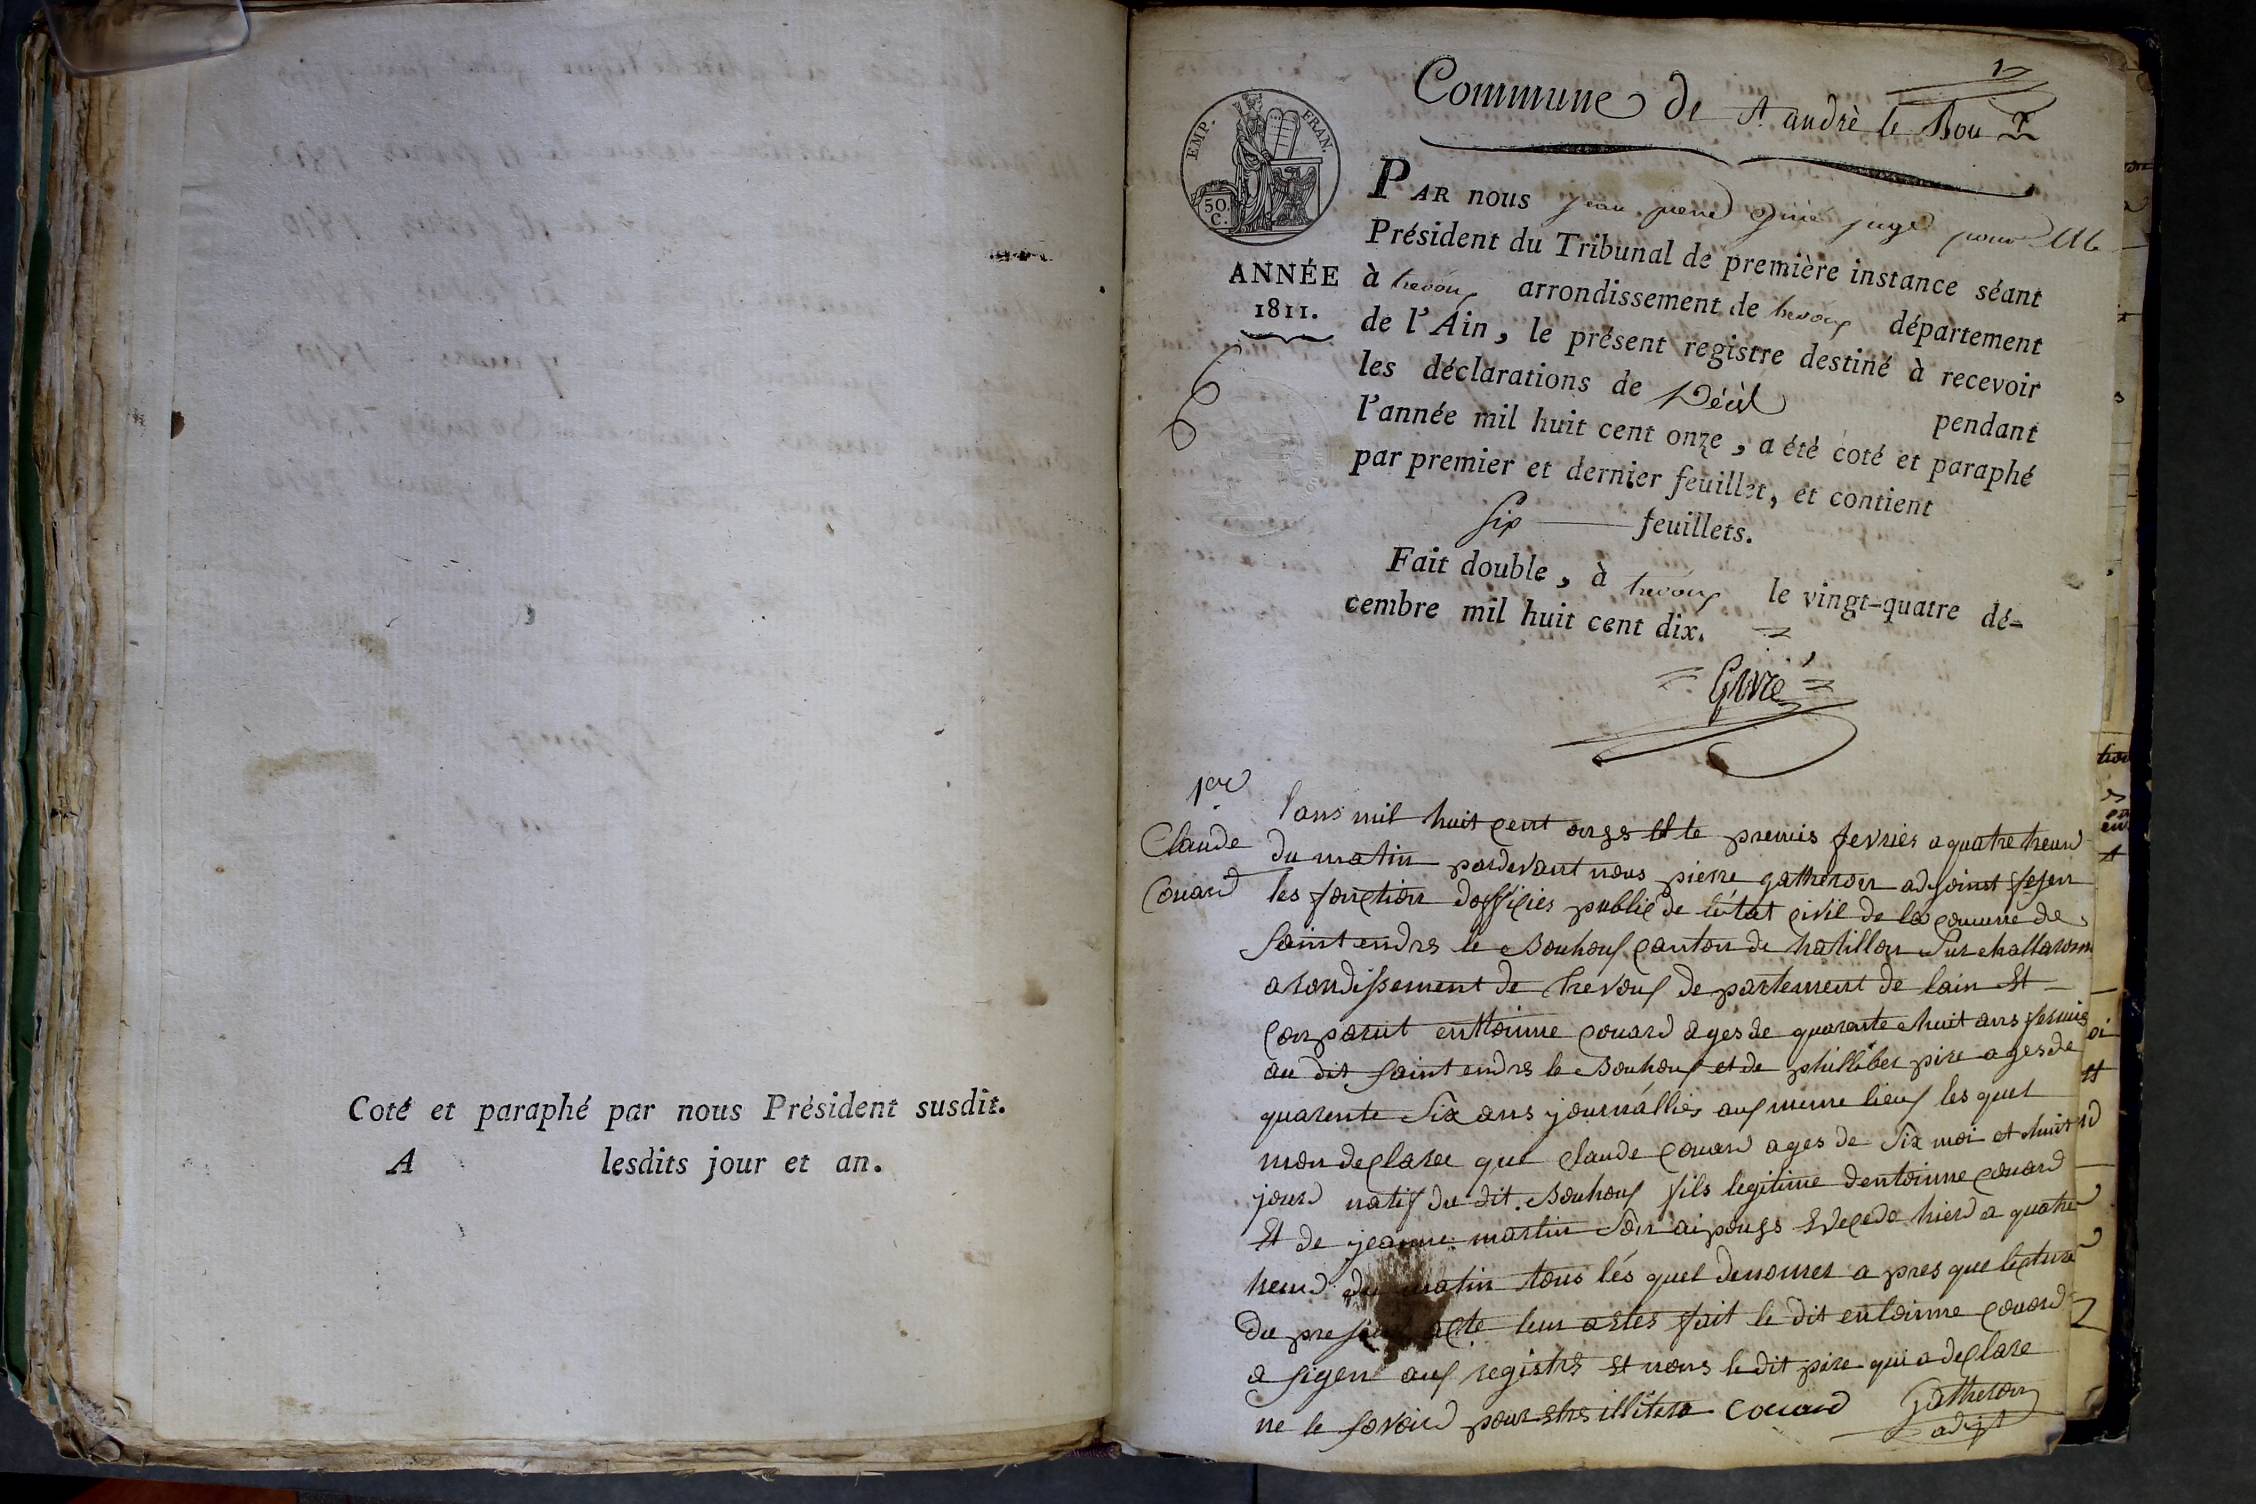 Coté et paraphé par nous Président susdit.
A lesdits jour et an.
1
Commune de St andrè le Bou
EMP. FRAN.
50. C.
ANNÉE
1811.
PAR nous jean pierre Givré juge pour Mr le
Président du Tribunal de première instance séant
à trevoux arrondissement de trevoux département
de l'Ain, le présent registre destiné à recevoir
les déclarations de Décès pendant
l'année mil huit cent onze, a été coté et paraphé
par premier et dernier feuillet, et contient
six feuillets.
Fait double, à trevoux le vingt-quatre dé-
cembre mil huit cent dix.
Givré
1er
Claude
Couard
lans mil huit cent onze et le premier fevrier a quatre heure
du matin pardevant nous pierre gatheron adjoint
les fonction dofficier public de létat civil de la comune de
Saint endre le Bouhouf canton de hatillon Sur challaronn
arondissement de trevouf departement de lain Et
Conparut enttoinne couard ages de quarente huit ans fermie
au dit Saint endre le Bouhouf et de philliber pire ages de
quarente Six ans journallier auf meme lieuf les quel
mon declaree que Claude Couard ages de Six moi et huit
jour natif du dit Bouhouf fils legitime dentoinne couard
Et de jeanne martin Son decede hier a quatre
heur du matin tous lés quel denomer a pres que lecture
du present acte leur fait le dit entoinne couard
a signe auf registre et nons le dit pire qui a declare
ne le savoir pour illitere Couard Gatheron
adjt